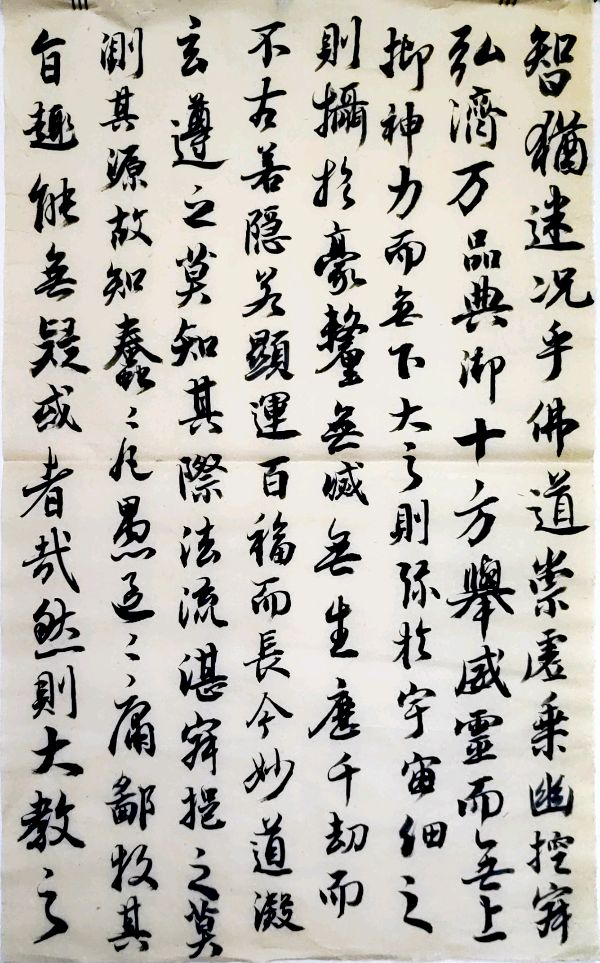 智猶迷况乎佛道崇虛乘幽控寂
弘濟万品典御十方舉威靈而無上
抑神力而無下大之則弥於宇宙細之
則攝於豪釐無滅無生歷千劫而
不古若隱若顯運百福而長今妙道凝
玄遵之莫知其際法流湛寂挹之莫
測其源故知蠢〻凡愚區〻庸鄙投其
旨趣能無疑或者哉然則大教之